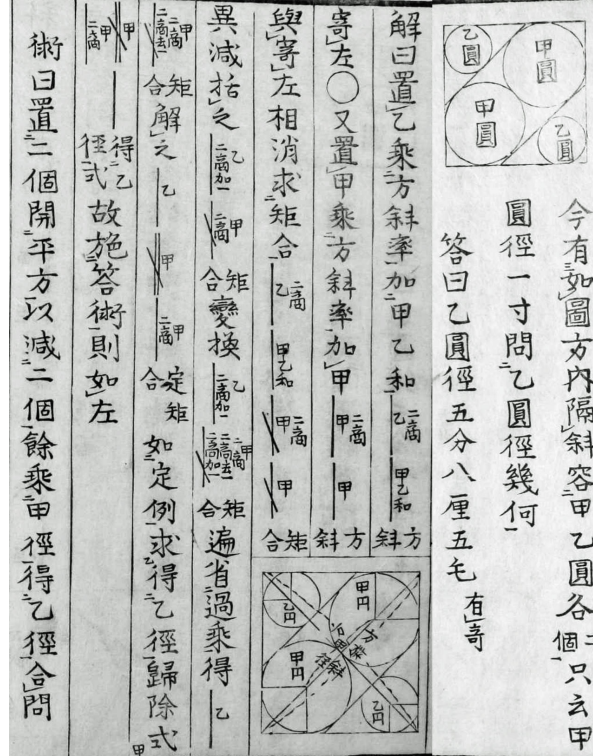 乙圓
甲圓
甲圓
乙圓
今有如圖方内隔斜容甲乙圓各二個只云甲
圓徑一寸問乙圓徑幾何
答曰乙圓徑五分八厘五毛有奇
解曰置乙乘方斜率加甲乙和 乙二商 甲乙和 方斜
寄左〇又置甲乘方斜率加甲 甲二商 甲 方斜
與寄左相消求矩合 乙二商 甲乙和 甲二商 甲 矩合
異減括之 乙二商加一 甲二商 矩合變換 乙二商加一 甲二商二商去一二商加一 矩合遍省過乘得 乙
甲二商二商去一 矩合解之 乙 甲 甲二商 定矩合 如定例求得乙徑歸除式 甲
甲 甲二商 得乙徑式故施答術則如左
術曰置二個開平方以減二個餘乘甲徑得乙徑合問
甲円
乙円
方斜
甲円
乙円